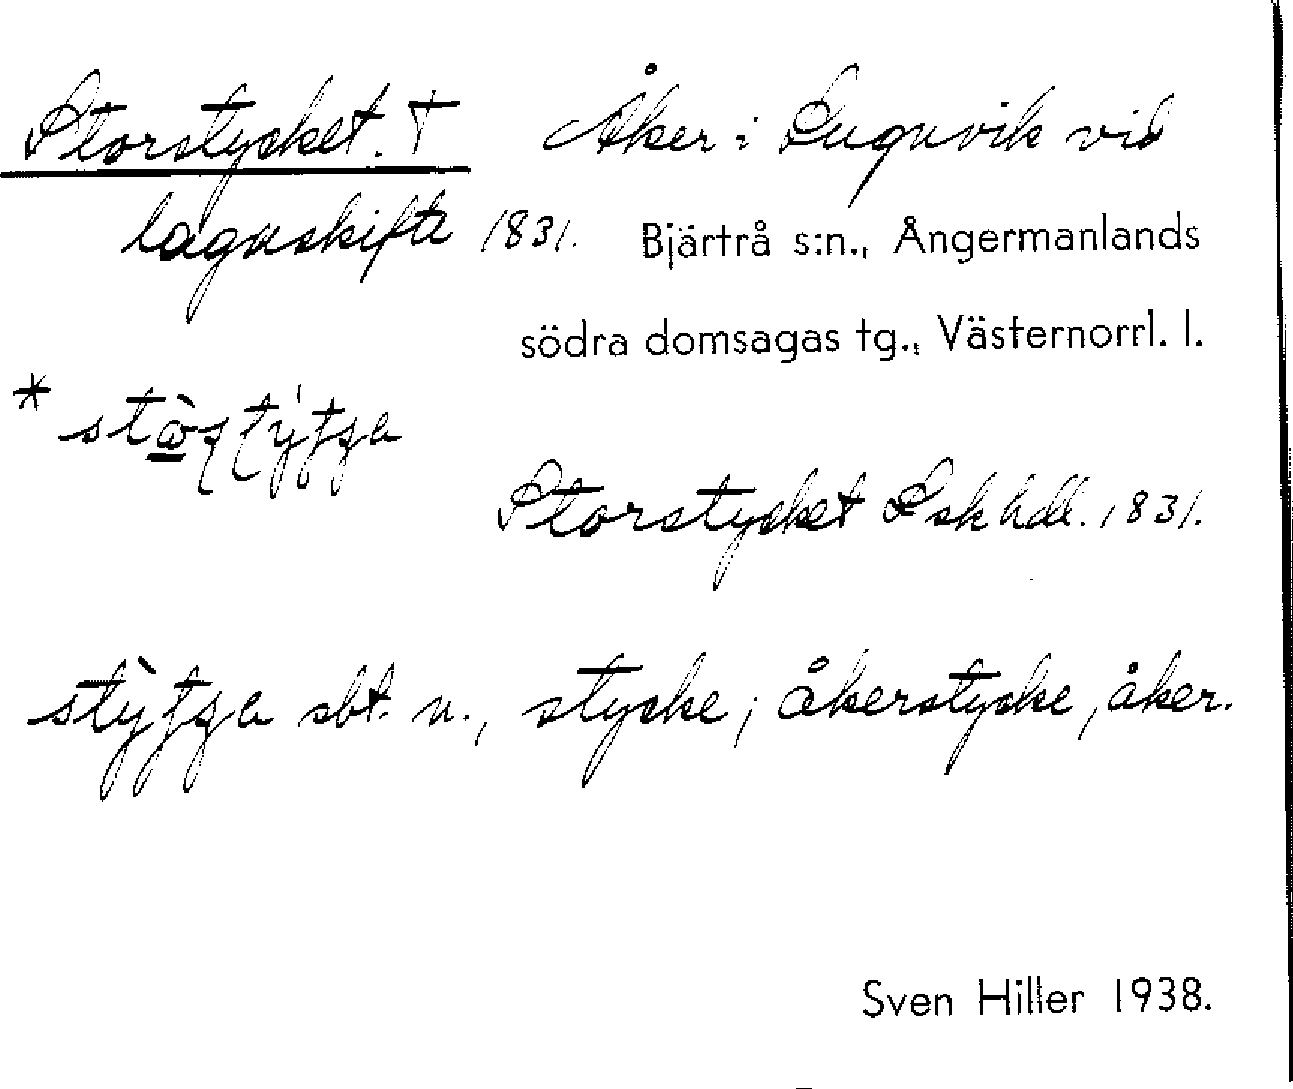 Storstycket. † Åker i Lugnvik vid
lagaskifte 1831. Bjärtrå s:n., Ångermanlands
södra domsagas tg., Västernorrl. l.
Storstycket Lsk hdl. 1831.
sbt. n., stycke; åkerstycke, åker.
Sven Hiller 1938.